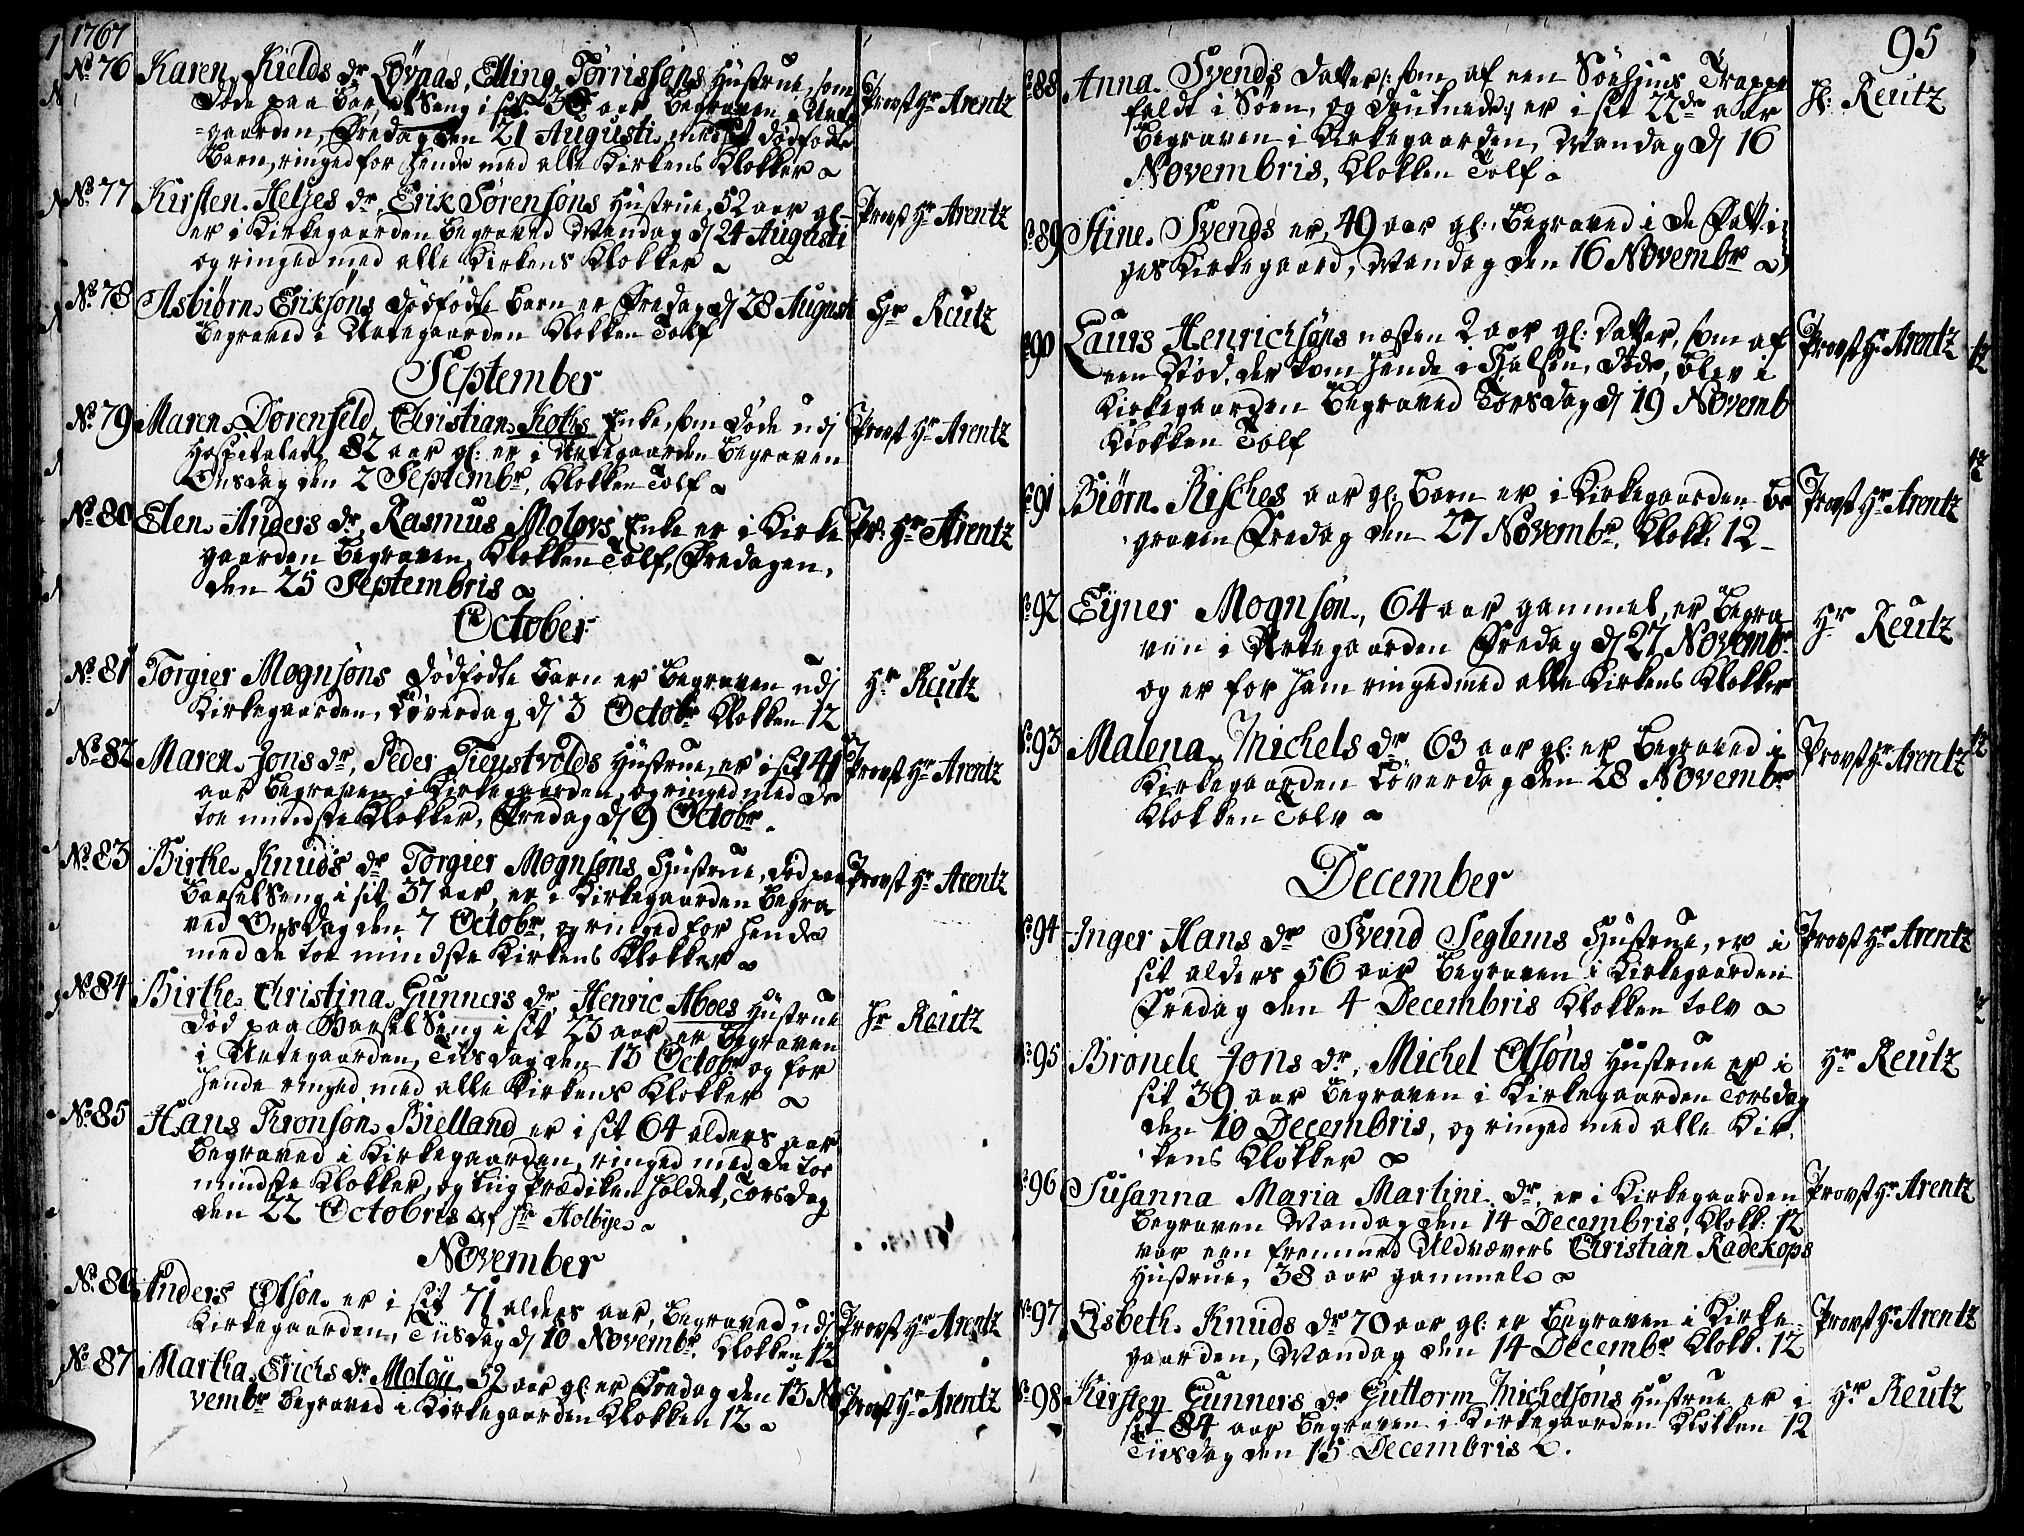 1767
No 76 Karen Kields dr Løvaas, Elling Tørrissøns Hustrue, som
døde paa Barsel Seng i sit 38 aar Begraven i Urte-
gaarden, Fredag den 21 Augusti, med sit dødfødte
Barn, ringed for hende med alle Kirkens Klokker
Provst Hr Arentz
No 77 Kirsten Heljes dr, Erik Sørensøns Hustrue, 52 aar gl.
er i Kirkegaarden Begraved Mandag d 24 Augusti
og ringed med alle Kirkens Klokker
Provst Hr Arentz
No 78 Asbiørn Eriksøns dødfødte Barn er Fredag d 28 August
Begraved i Urtegaarden Klokken Tolf
Hr Reutz
September
No 79 Maren Dorenfeld, Christian Koths Enke, som døde udj
Hospitalet, 82 aar gl: er i Urtegaarden Begraven
Onsdag den 2 Septembr, Klokken Tolf
Provst Hr Arentz
No 80 Elen Anders dr, Rasmus Moløys Enke er i Kirke
gaarden Begraven, Klokken Tolf, Fredagen,
den 25 Septembris
Pr: Hr Arentz
October
No 81 Torgier Mognsøns dødfødte Barn er Begraven udj
Kirkegaarden, Løverdag d 3 Octobr Klokken 12
Hr Reutz
No 82 Maren Jons dr, Peder Tienstvolds Hustrue, er i sit 41
aar Begraven i Kirkegaarden, og ringed med de
toe mindste Klokker, Fredag d 9 Octobr.
Provst Hr Arentz
No 83 Birthe Knuds dr Torgier Mognsøns Hustrue, død paa
Barsel Seng i sit 37 aar, er i Kirkegaarden Begra
ved Onsdag den 7 Octobr, og ringed for hende
med de toe mindste Kirkens Klokker
Provst Hr Arentz
No 84 Birthe Christina Gunners dr, Henric Aboes Hustrue
død paa Barsel Seng i sit 23 aar, er Begraven
i Urtegaarden, Tiisdag den 13 Octobr og for
hende ringed med alle Kirkens Klokker
Hr Reutz
No 85 Hans Tronsøn Bielland er i sit 64 alders aar
Begraved i Kirkegaarden, ringed med de toe
mindste Klokker, og Liig Prædiken holdet, Torsdag
den 22 Octobris af Hr Holbye
November
No 86 Anders Olsøn er i sit 71 alders aar, Begraved udj
Kirkegaarden, Tiisdag d 10 Novembr. Klokken 12
Provst Hr Arentz
No 87 Martha Erichs dr Moløy 52 aar gl: er Fredag den 13 No
vembr Begraved i Kirkegaarden Klokken 12
Provst Hr Arentz
95
No 88 Anna Svends Datter /: som af een Søehuus Trappe
faldt i Søen, og druknede :/ er i sit 22de aar
Begraven i Kirkegaarden, Mandag d 16
Novembris, Klokken Tolf
H: Reutz
No 89 Stine Svends er, 49 aar gl: Begraved i de Fatti
ges Kirkegaard, Mandag den 16 Novembr
No 90 Laurs Henrichsøns næsten 2 aar gl: Datter, som af
een Stød, der kom hende i Halsen, døde, blev i
Kirkegaarden Begraved Torsdag d 19 Novemb
Klokken Tolf
Provst Hr Arentz
No 91 Biørn Risches aar gl: Barn er i Kirkegaarden Be
graven Fredag den 27 Novembr. Klokk. 12
Provst Hr Arentz
No 92 Eyner Mognsøn, 64 aar gammel, er Begra
ven i Urtegaarden Fredag d 27 Novembr.
og er for ham ringed med alle Kirkens Klokker
Hr Reutz
No 93 Malena Michels dr 63 aar gl: er Begraved i
Kirkegaarden Løverdag den 28 Novembr
Klokken Tolv
Provst Hr Arentz
December
No 94 Inger Hans dr Svend Seglems Hustrue, er i
sit alders 56 aar Begraven i Kirkegaarden
Fredag den 4 Decembris Klokken tolv
Provst Hr Arentz
No 95 Bronele Jons dr, Michel Olsøns Hustrue er i
sit 39 aar Begraven i Kirkegaarden Torsdag
den 10 Decembris, og ringed med alle Kir-
kens Klokker
Hr Reutz
No 96 Susanna Maria Martini dr, er i Kirkegaarden
Begraven Mandag den 14 Decembris, Klokk: 12
var een fremmed Uldvævers Christian Radekops
Hustrue, 38 aar gammel
Provst Hr Arentz
No 97 Lisbeth Knuds dr 70 aar gl: er Begraven i Kirke-
gaarden, Mandag den 14 Decembr Klokk. 12
Provst Hr Arentz
No 98 Kirsten Gunners dr Guttorm Michelsøns Hustrue er i
sit 84 aar Begraven i Kirkegaarden Klokken 12
Tiisdag den 15 Decembris
Hr Reutz